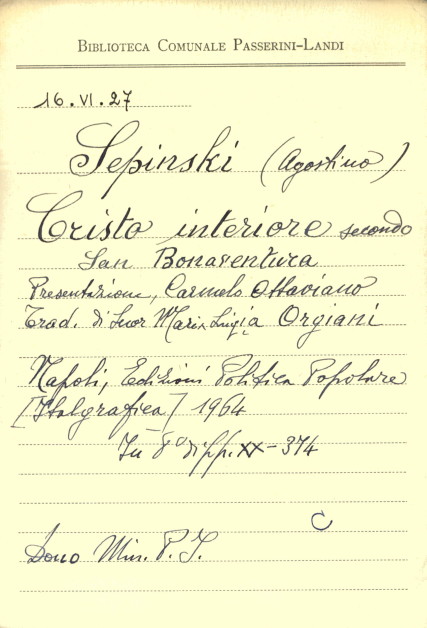 BIBLIOTECA COMUNALE PASSERINI-LANDI
16.VI.27
Sepinski (Agostino)
Cristo interiore secondo
San Bonaventura
Presentazione, Carmelo Ottaviano
Trad. di Suor Maria Luigia Orgiani
Napoli, Edizioni Politica Popolare
[Italgrafica] 1964
In 8° di pp. XX-374
C
Dono Min. P. I.